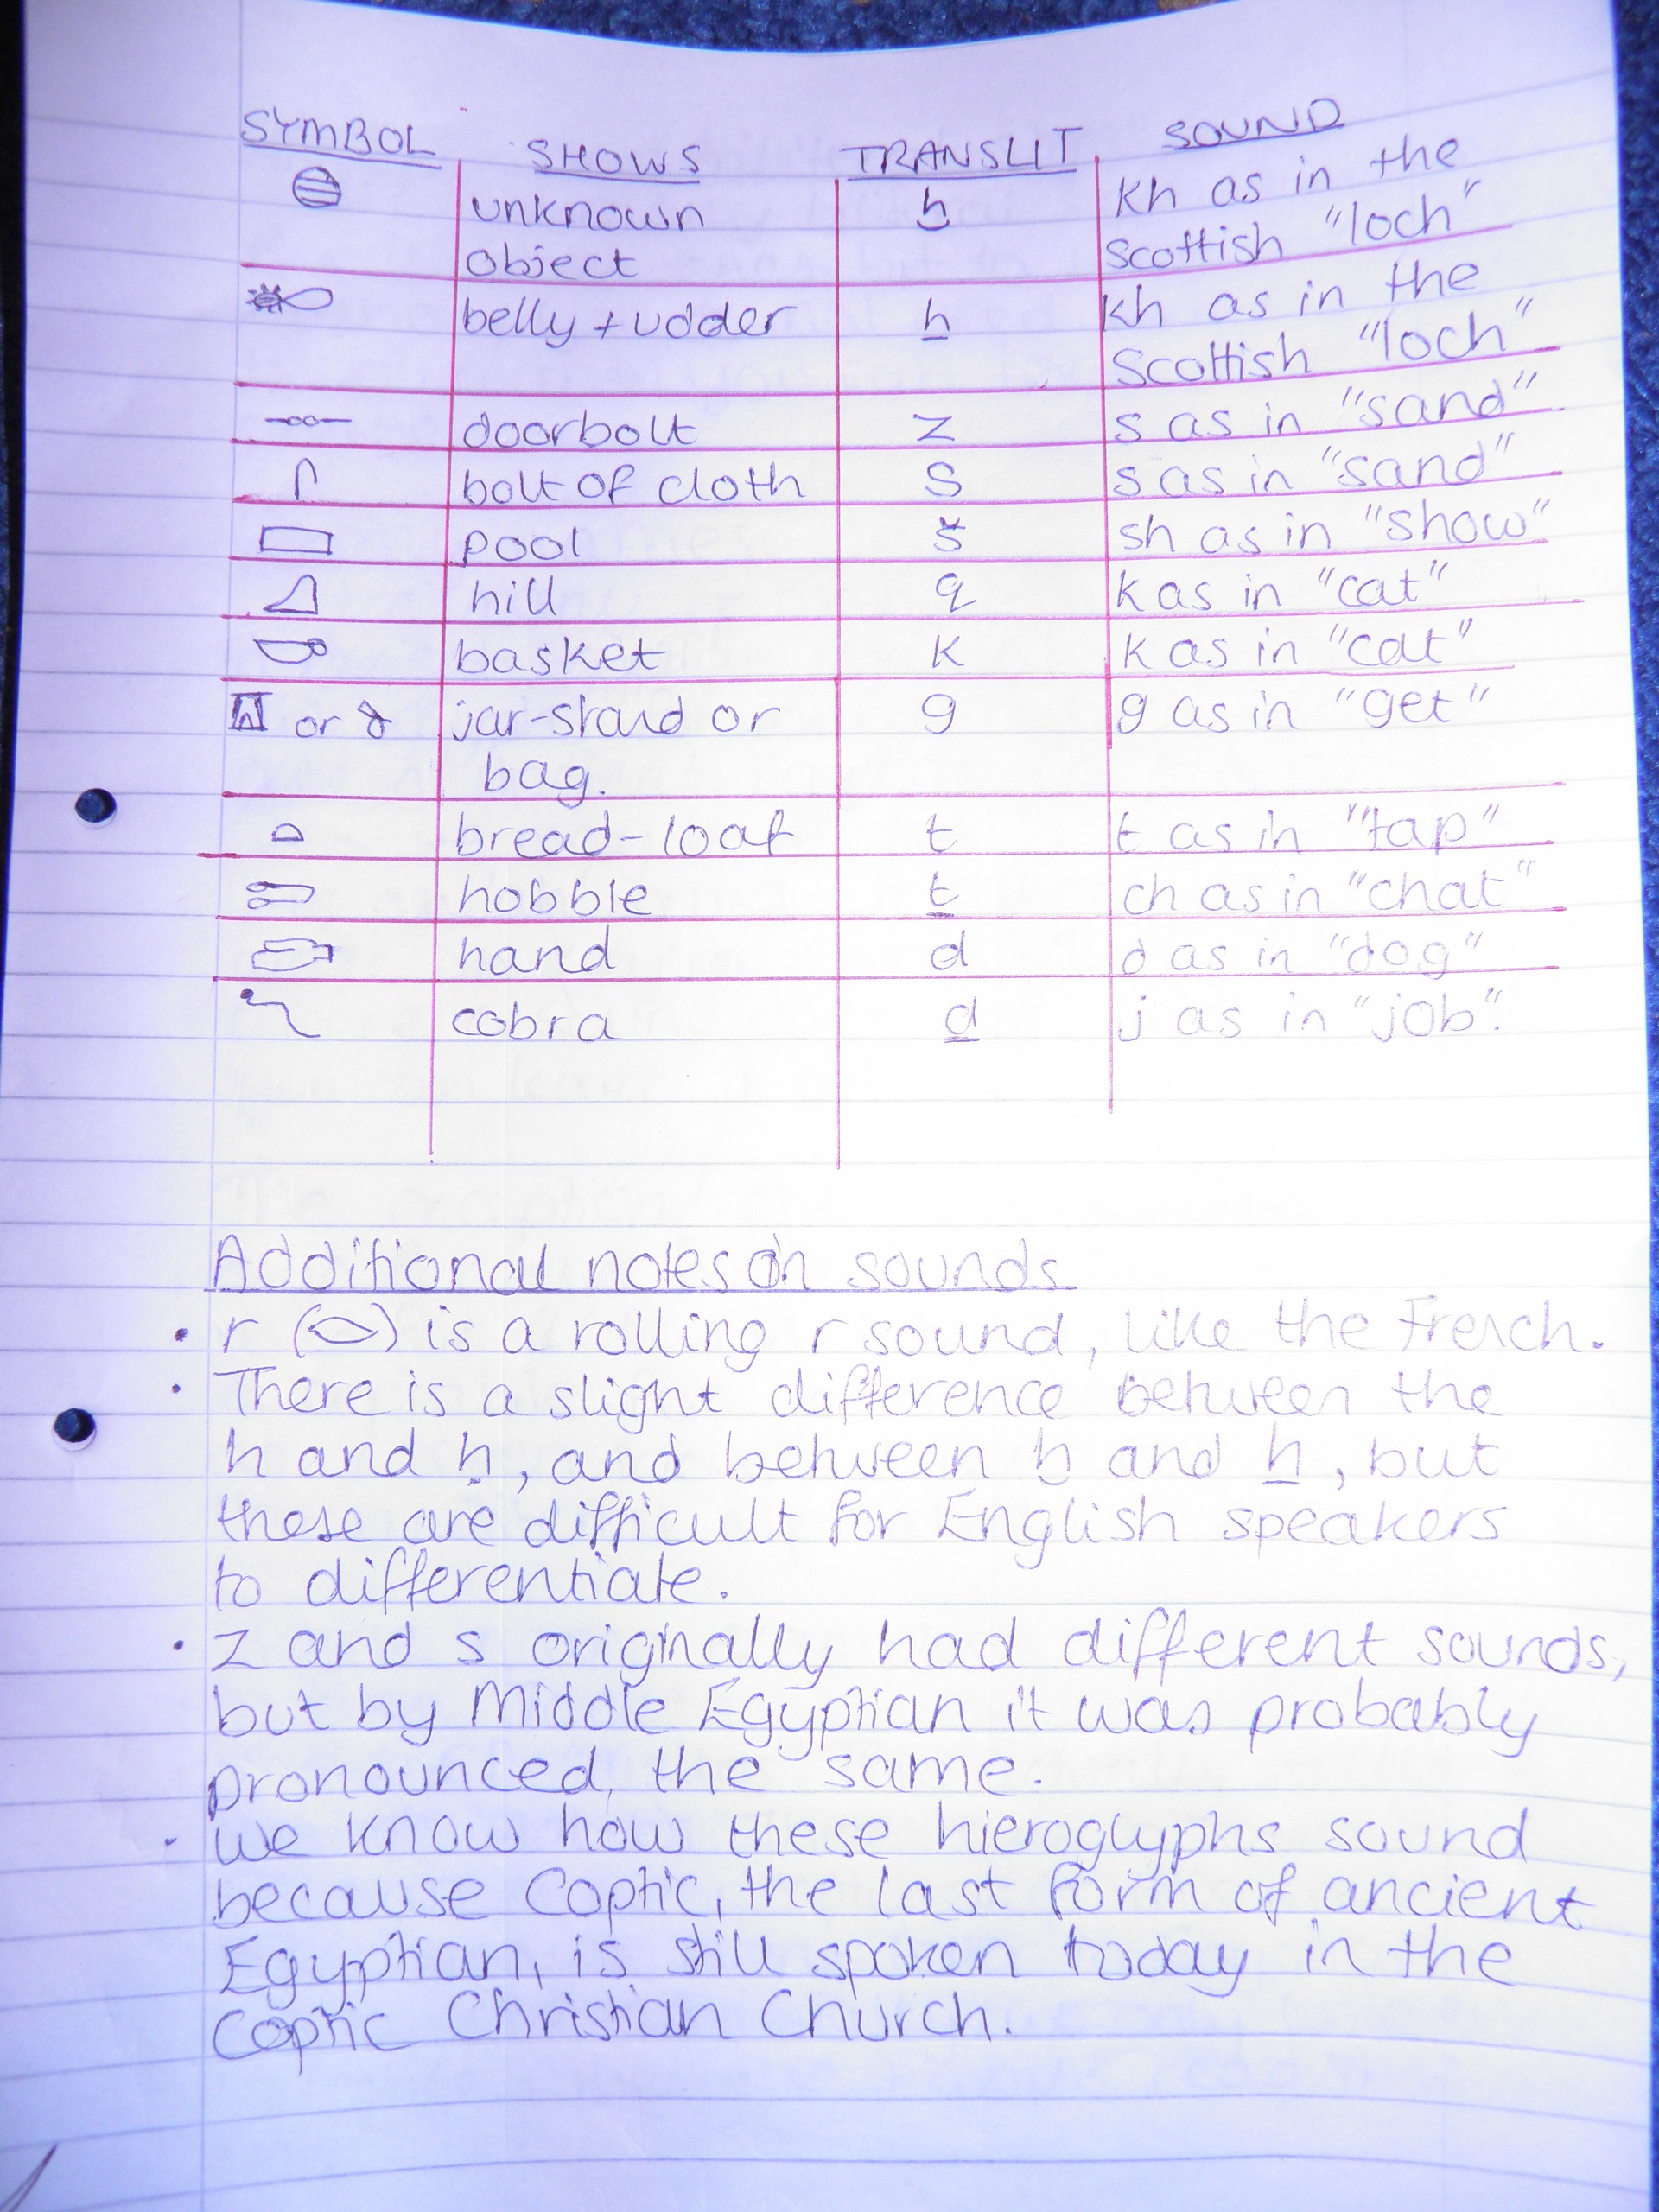 SYMBOL SHOWS TRANSLIT SOUND
unknown ḫ kh as in the
object Scottish "loch"
belly + udder ẖ kh as in the
Scottish "loch"
doorbolt z s as in "sand"
bolt of cloth s s as in "sand"
pool š sh as in "show"
hill q k as in "cat"
basket k k as in "cat"
or jar-stand or g g as in "get"
bag.
bread-loaf t t as in "tap"
hobble ṯ ch as in "chat"
hand d d as in "dog"
cobra ḏ j as in "job".
Additional notes on sounds
• r ( ) is a rolling r sound, like the French.
• There is a slight difference between the
h and ḥ, and between ḫ and ẖ, but
these are difficult for English speakers
to differentiate.
• z and s originally had different sounds,
but by Middle Egyptian it was probably
pronounced the same.
• we know how these hieroglyphs sound
because Coptic, the last form of ancient
Egyptian, is still spoken today in the
Coptic Christian Church.